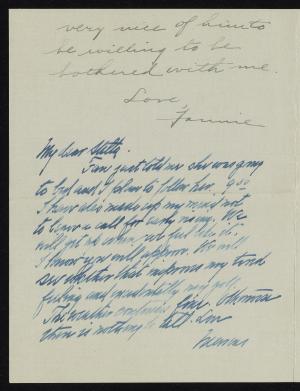 very nice of him to
be willing to be
bothered with me.
Love,
Fannie
My dear
Fan just told me she was going
to bed and I plan to follow her.
I have also made up my mind not
to leave a call for early rising. We
will get up when we feel like it.
I know you will approve. We will
see whether that improves my tired
feeling and incidentally my golf.
The weather continues fine. Otherwise
there is nothing to tell. Love